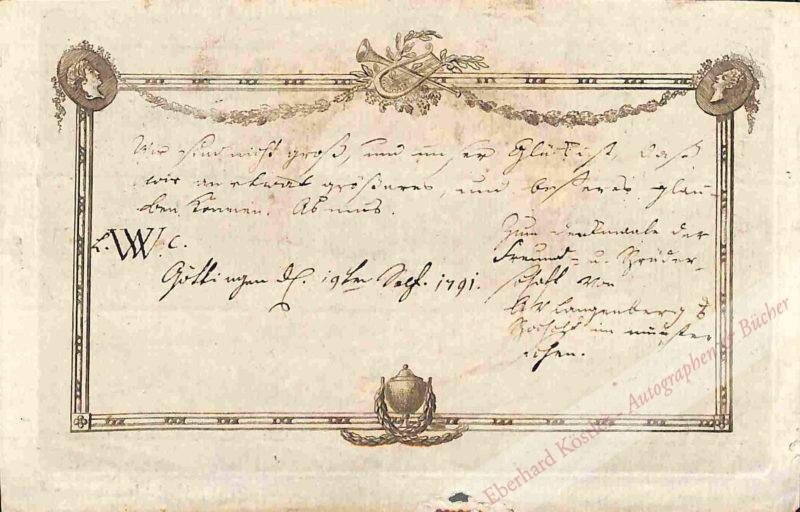 Wir sind nicht groß, und unser Glück ist, daß
wir an etwas größeres, und besseres glau-
ben können. Asmus.
Göttingen d. 19ten 1791.
Zum Denkmaale der
Freund- u. Brüder-
schaft von
Langenberg
im münster
ischen.
Eberhard Köstler - Autographen & Bücher